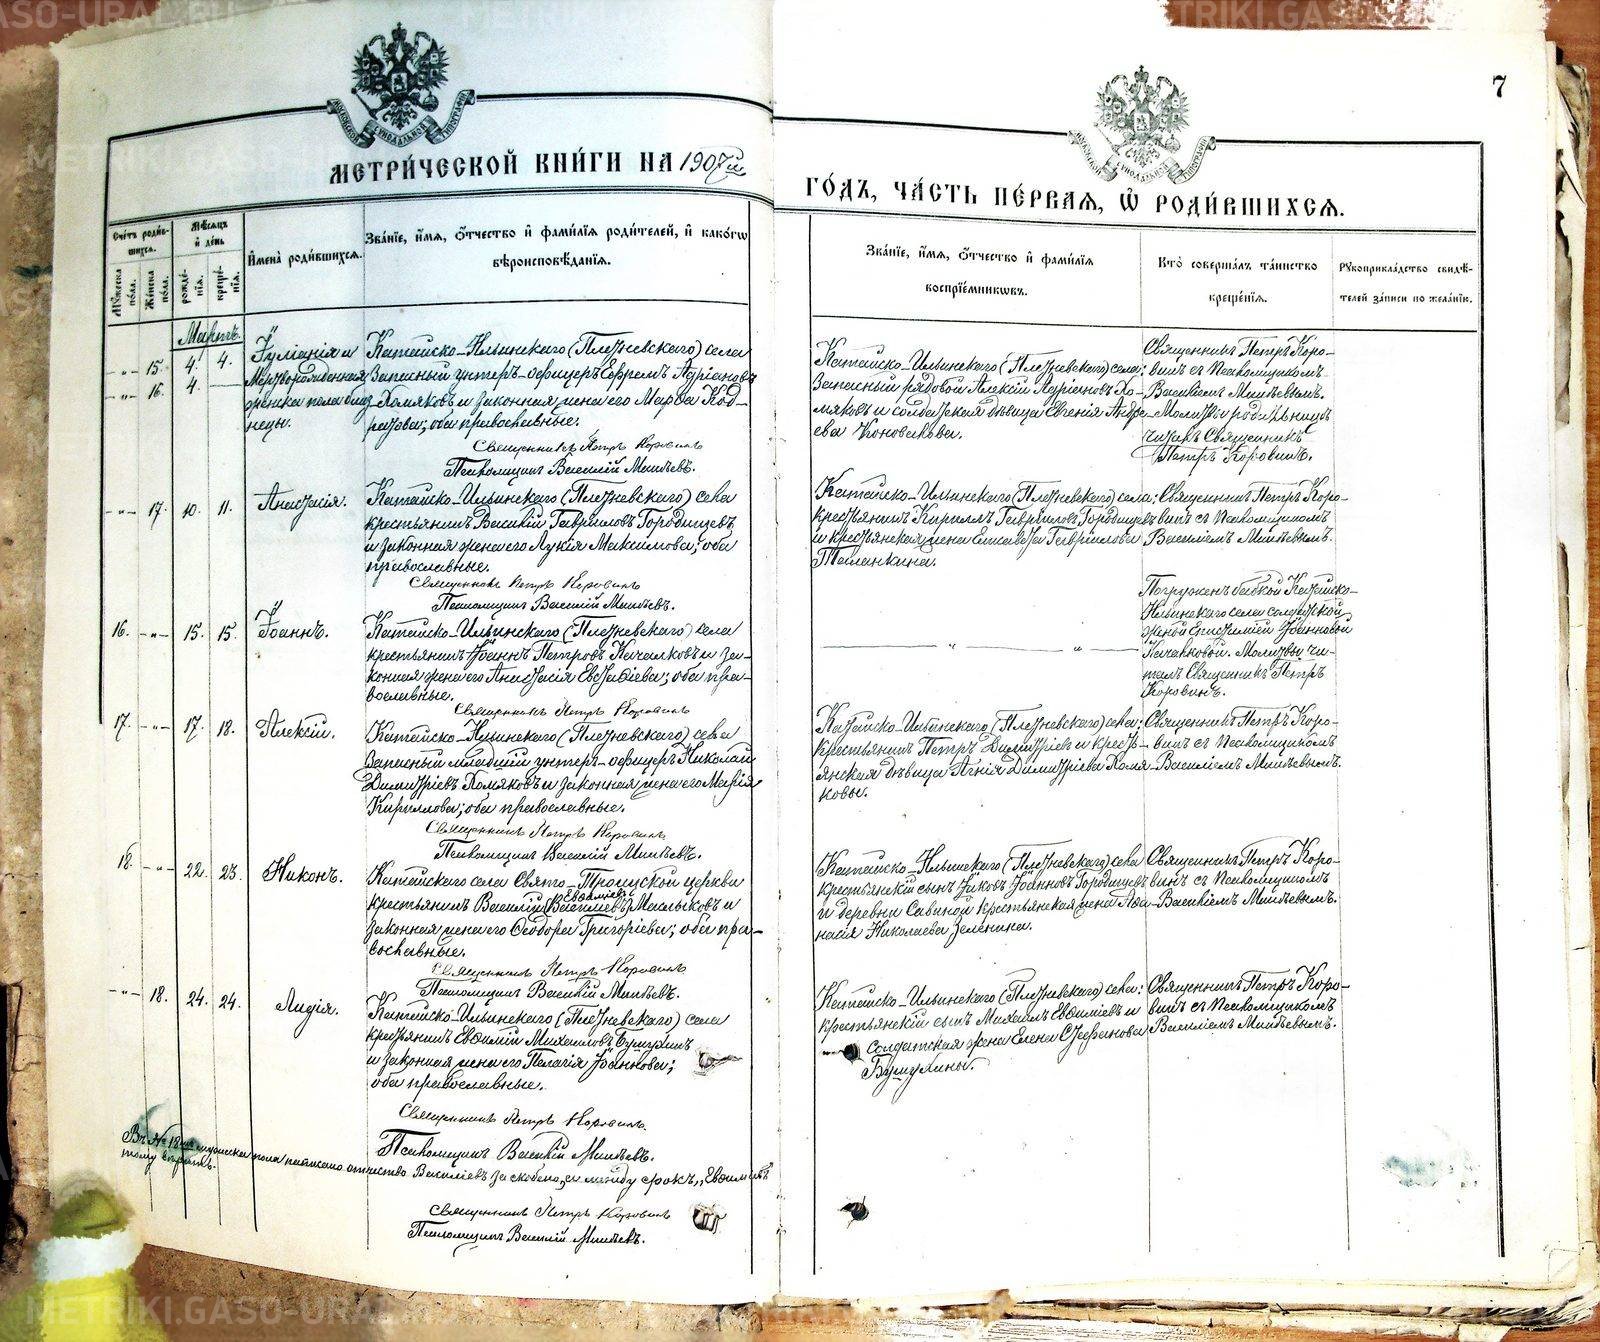 7
МЕТРИ́ЧЕСКОЙ КНИ́ГИ НА 1907й
ГО́ДЪ, ЧА́СТЬ ПЕ́РВАЯ, Ѡ РОДИ́ВШИХСЯ.
Сче́тъ роди́вшихся.
Му́жеска по́ла.
Же́нска по́ла.
Мѣ́сяцъ и день
рожде́нія.
креще́нія.
Имена̀ роди́вшихся.
Зва́ніе, и́мя, о́тчество и фами́лія роди́телей, и како́гѡ
вѣроисповѣ́данія.
Зва́ніе, и́мя, о́тчество и фами́лія
воспріе́мниковъ.
Кто̀ соверша́лъ та́инство
креще́нія.
Рукоприкла́дство свидѣ́-
телей за́писи по жела́нію.
Мартъ.
-„- 15. 4. 4.
-„- 16. 4. —
Іуліанія и
Мертворожденная
женска пола близ-
нецы.
Катайско-Ильинскаго (Плотневскаго) села
Запасный унтеръ-офицеръ Ефремъ Адріановъ
Хомяковъ и законная жена его Марѳа Код-
ратова; оба православные.
Священникъ Петръ Коровинъ
Псаломщикъ Василій
Катайско-Ильинскаго (Плотневскаго) села:
Запасный рядовой Алексій Адріановъ Хо-
мяковъ и солдатская дѣвица Евгенія Андре-
ева Коновалова.
Священникъ Петръ Коро-
винъ съ Псаломщикомъ
Василіемъ
Молитвы родильницѣ
читалъ Священникъ
Петръ Коровинъ.
-„- 17. 10. 11.
Анастасія.
Катайско-Ильинскаго (Плотневскаго) села
крестьянинъ Василій Гавріиловъ Городищевъ
и законная жена его Лукія Максимова; оба
православные.
Священникъ Петръ Коровинъ
Псаломщикъ Василій
Катайско-Ильинскаго (Плотневскаго) села:
крестьянинъ Кириллъ Гавріиловъ Городищевъ
и крестьянская жена Елисавета Гавриилова
Священникъ Петръ Коро-
винъ съ Псаломщикомъ
Василіемъ
16. -„- 15. 15.
Іоаннъ.
Катайско-Ильинскаго (Плотневскаго) села
крестьянинъ Іоаннъ Петровъ Качалковъ и за-
конная жена его Анастасія Евставіева; оба пра-
вославные.
Священникъ Петръ Коровинъ
— „ — „ —
Погруженъ бабкой Катайско-
Ильинскаго села солдатской
женой Іоанновой
Качалковой. Молитвы чи-
талъ Священникъ Петръ
Коровинъ.
17. -„- 17. 18.
Алексій.
Катайско-Ильинскаго (Плотневскаго) села
Запасный младшій унтеръ-офицеръ Николай
Димитріевъ Хомяковъ и законная жена его Марія
Кириллова; оба православные.
Священникъ Петръ Коровинъ
Псаломщикъ Василій
Катайско-Ильинскаго (Плотневскаго) села:
крестьянинъ Петръ Димитріевъ и кресть-
янская дѣвица Агнія Димитріева Хомя-
ковы.
Священникъ Петръ Коро-
винъ съ Псаломщикомъ
Василіемъ
18. -„- 22. 23.
Никонъ.
Катайскаго села Свято-Троицской церкви
Евѳиміевъ
крестьянинъ Василій (Василіевъ) Малыковъ и
законная жена его Ѳеодора Григоріева; оба пра-
вославные.
Священникъ Петръ Коровинъ
Псаломщикъ Василій
Катайско-Ильинскаго (Плотневскаго) села
крестьянскій сынъ Іаковъ Іоанновъ Городищевъ
и деревни Савиной крестьянская жена Аѳа-
насія Николаева Зеленина.
Священникъ Петръ Коро-
винъ съ Псаломщикомъ
Василіемъ
-„- 18. 24. 24.
Лидія.
Катайско-Ильинскаго (Плотневскаго) села
крестьянинъ Евѳимій Михаиловъ
и законная жена его Пелагія Іоаннова;
оба православные.
Священникъ Петръ Коровинъ.
Псаломщикъ Василій
Катайско-Ильинскаго (Плотневскаго) села:
крестьянскій сынъ Михаилъ Евѳиміевъ и
солдатская жена Елена Стефанова
Священникъ Петръ Коро-
винъ съ Псаломщикомъ
Василіемъ
Въ № 18мъ мужеска пола написано отчество Василіевъ за скобено, а между строкъ „Евѳиміевъ"
тому вѣрить.
Священникъ Петръ Коровинъ
Псаломщикъ Василій
METRIKI.GASO-URAL.RU